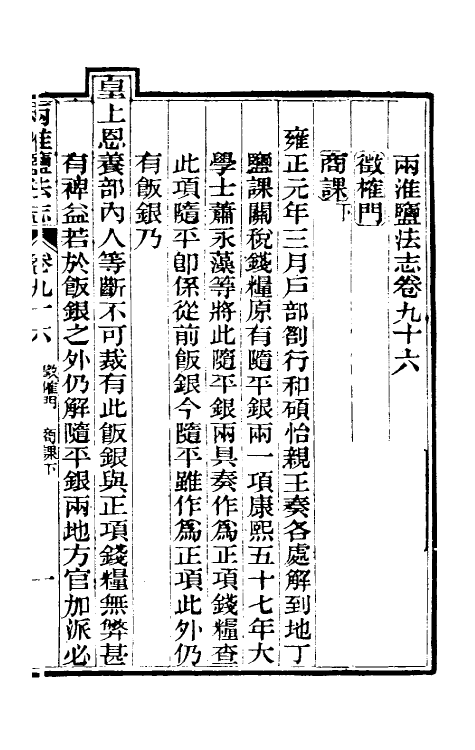 兩淮鹽法志卷九十六
徵榷門
商課下
雍正元年三月戶部劄行和碩怡親王奏各處解到地丁
鹽課關稅錢糧原有隨平銀兩一項康熙五十七年大
學士蕭永藻等將此隨平銀兩具奏作爲正項錢糧查
此項隨平卽係從前飯銀今隨平雖作爲正項此外仍
有飯銀乃
皇上恩養部內人等斷不可裁有此飯銀與正項錢糧無弊甚
有裨益若於飯銀之外仍解隨平銀兩地方官加派必
兩淮鹽法志 卷九十六 徵榷門 商課下 一